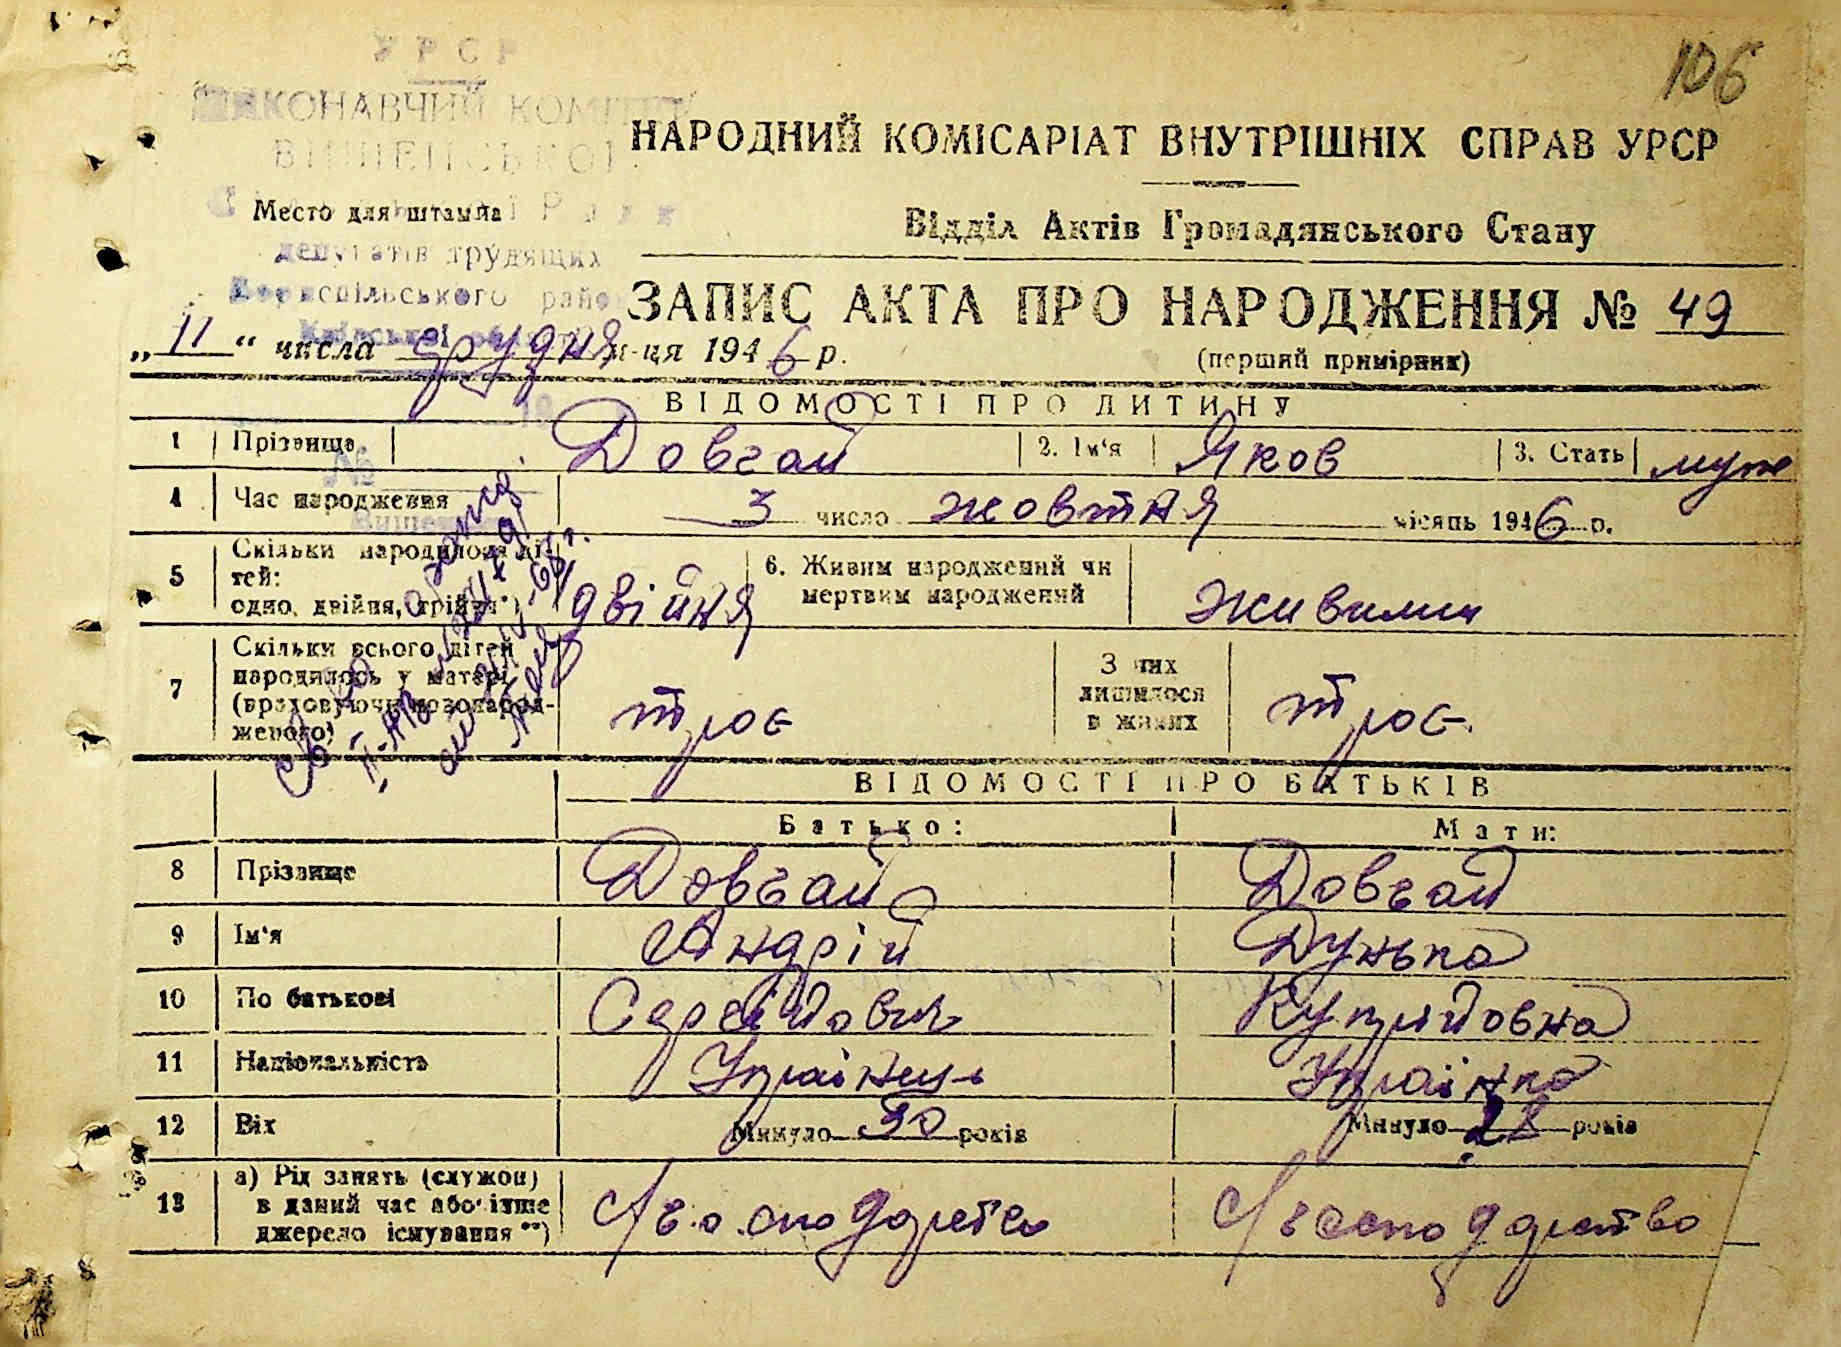 106
УРСР
ВИКОНАВЧИЙ КОМІТЕТ
НАРОДНИЙ КОМІСАРІАТ ВНУТРІШНІХ СПРАВ УРСР
Место для штампа
Відділ Актів Громадянського Стану
депутатів трудящих
Бориспільського району
Київської області
ЗАПИС АКТА ПРО НАРОДЖЕННЯ № 49
„11“ числа грудня м-ця 1946 р.
(перший примірник)
ВІДОМОСТІ ПРО ДИТИНУ
1 Прізвище Довгай 2. Ім'я Яков 3. Стать муж
4 Час народження 3 число жовтня місяць 1946 р.
5 Скільки народилося дітей: одно, двійня, трійня*) двійня 6. Живим народжений чи мертвим народжений живими
7 Скільки всього дітей народилось у матері (враховуючи новонародженого) троє З них лишилося в живих троє.
ВІДОМОСТІ ПРО БАТЬКІВ
Батько: Мати:
8 Прізвище Довгай Довгай
9 Ім'я Андрій Дунька
10 По батькові Сергійович Купрійовна
11 Національність Українець Українка
12 Вік Минуло 30 років Минуло 28 років
13 а) Рід занять (служби) в даний час або інше джерело існування **) с/господарство с/господарство